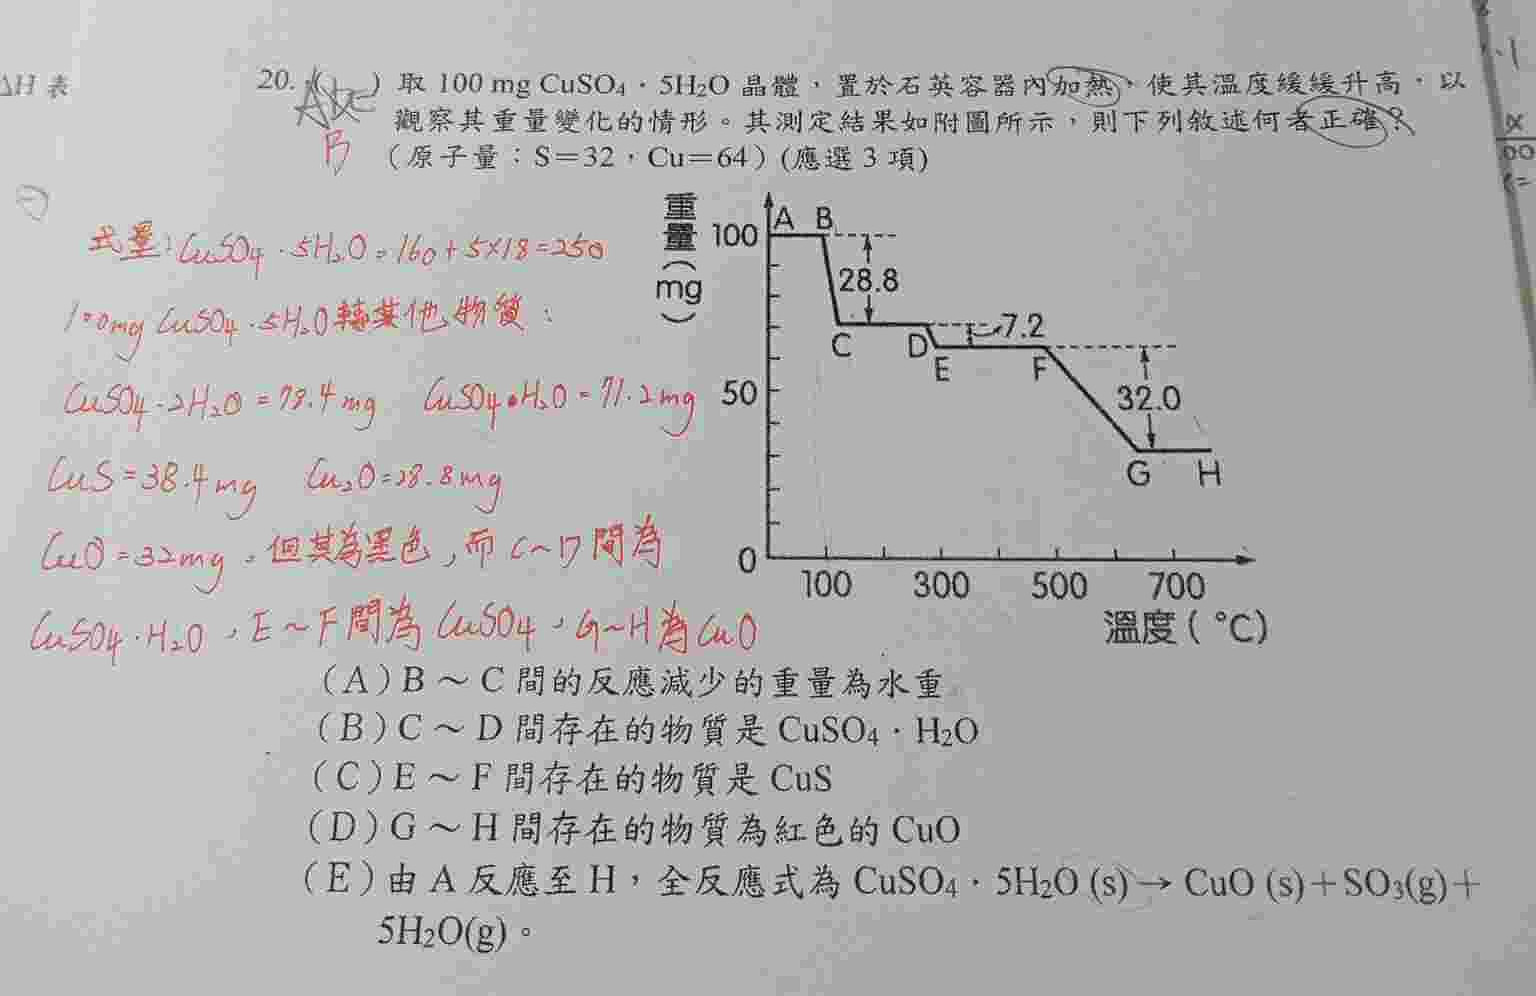 ΔH 表
20. ( ) 取 100 mg CuSO₄．5H₂O 晶體，置於石英容器內加熱，使其溫度緩緩升高，以
觀察其重量變化的情形。其測定結果如附圖所示，則下列敘述何者正確？
B
（原子量：S＝32，Cu＝64）(應選 3 項)
式量：CuSO₄．5H₂O = 160 + 5×18 = 250
100mg CuSO₄．5H₂O 轉其他物質：
CuSO₄．2H₂O = 78.4 mg CuSO₄．H₂O = 71.2 mg
CuS = 38.4 mg Cu₂O = 28.8 mg
CuO = 32 mg，但其為黑色，而 C～D 間為
CuSO₄．H₂O，E～F 間為 CuSO₄，G～H 為 CuO
重量(mg)
100
50
0
A B
28.8
C D
7.2
E F
32.0
G H
100 300 500 700
溫度(℃)
(A) B～C 間的反應減少的重量為水重
(B) C～D 間存在的物質是 CuSO₄．H₂O
(C) E～F 間存在的物質是 CuS
(D) G～H 間存在的物質為紅色的 CuO
(E) 由 A 反應至 H，全反應式為 CuSO₄．5H₂O (s) → CuO (s)＋SO₃(g)＋
5H₂O(g)。